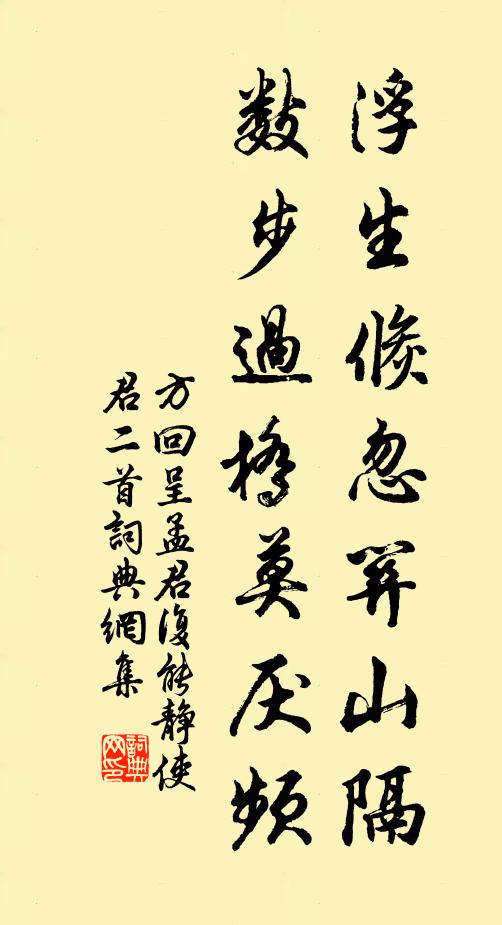 浮生倏忽關山隔
數步過橋莫厌頻
方回呈孟君復能靜使
君二首詞典網集
詞典
网印